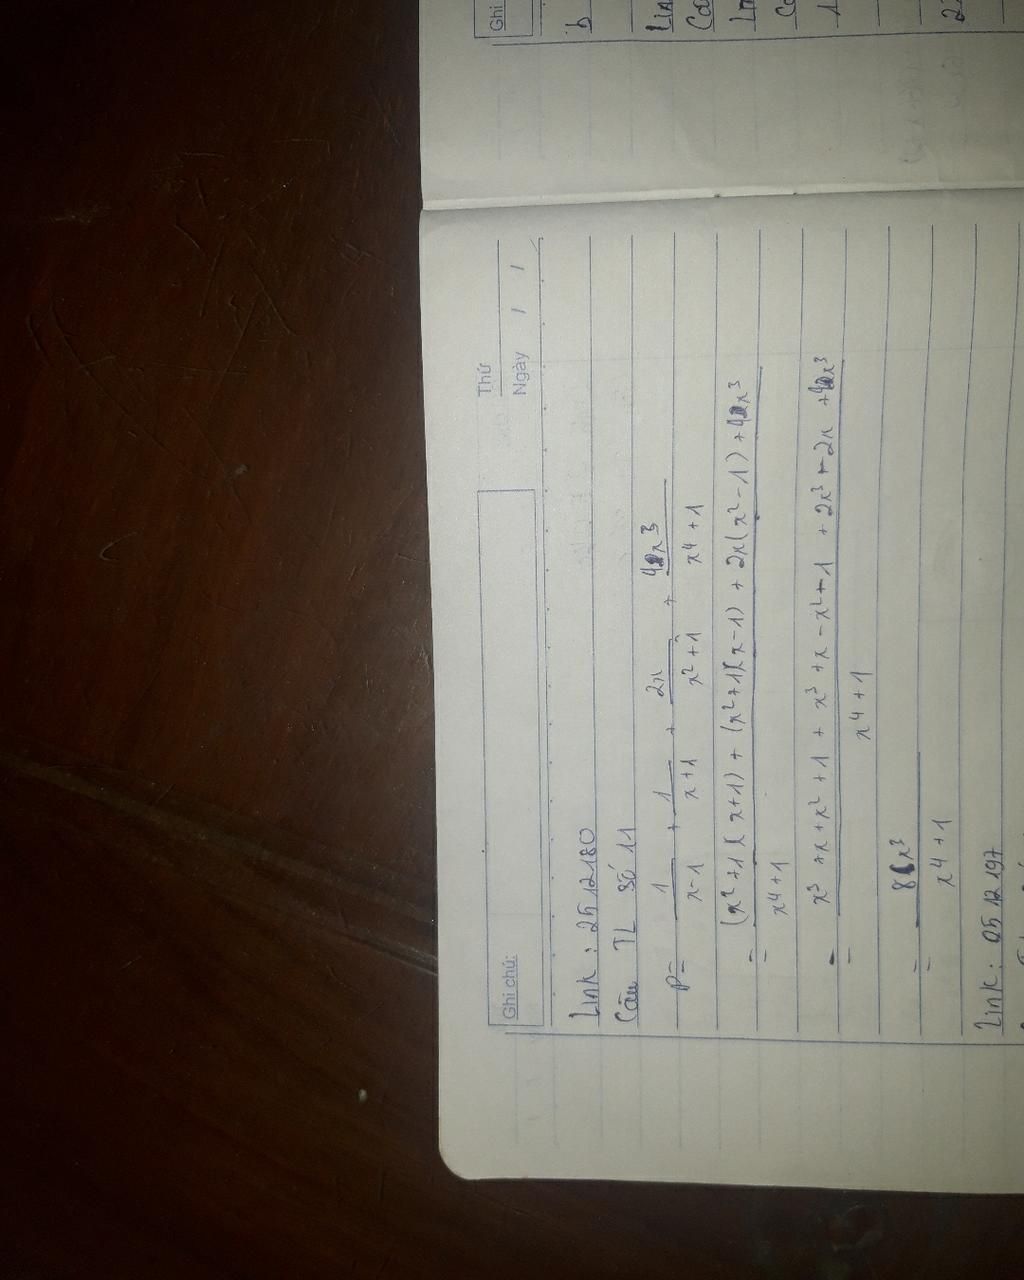 Ghi chú:
Thứ
Ngày / /
Link: 2512180
Câu TL số 11
P = 1/(x-1) + 1/(x+1) + 2x/(x²+1) + 4x³/(x⁴+1)
= ((x²+1)(x+1) + (x²+1)(x-1) + 2x(x²-1) + 4x³)/(x⁴+1)
= (x³+x+x²+1 + x³+x-x²+1 + 2x³+2x+4x³)/(x⁴+1)
= 8x³/(x⁴+1)
Link: 0512197
Ghi
b
Lin